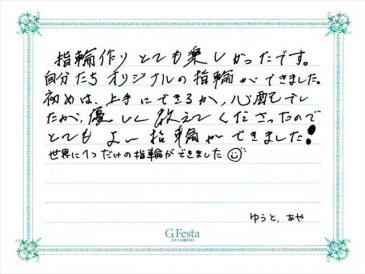 指輪作りとても楽しかったです。
自分たちオリジナルの指輪ができました。
初めは、上手にできるか、心配でし
たが、優しく教えてくださったので
とてもよい指輪ができました!
世界に1つだけの指輪ができました
ゆうと、あや
G.Festa